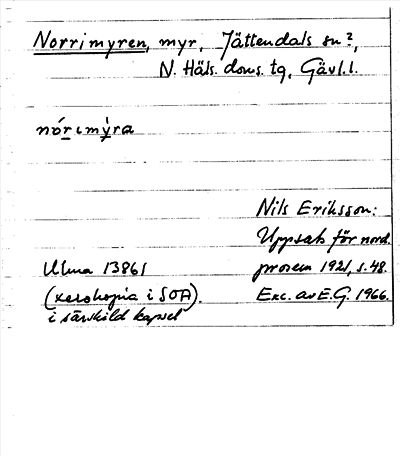 Norrimyren, myr, Jättendals sn?,
N. Häls. doms. tg, Gävl.l.
nórimỳra
Nils Eriksson:
Uppsats för nord.
Ulma 13861 prosem 1921, s. 48.
(xerokopia i SOA). Exc. av E.G. 1966.
i särskild kapsel